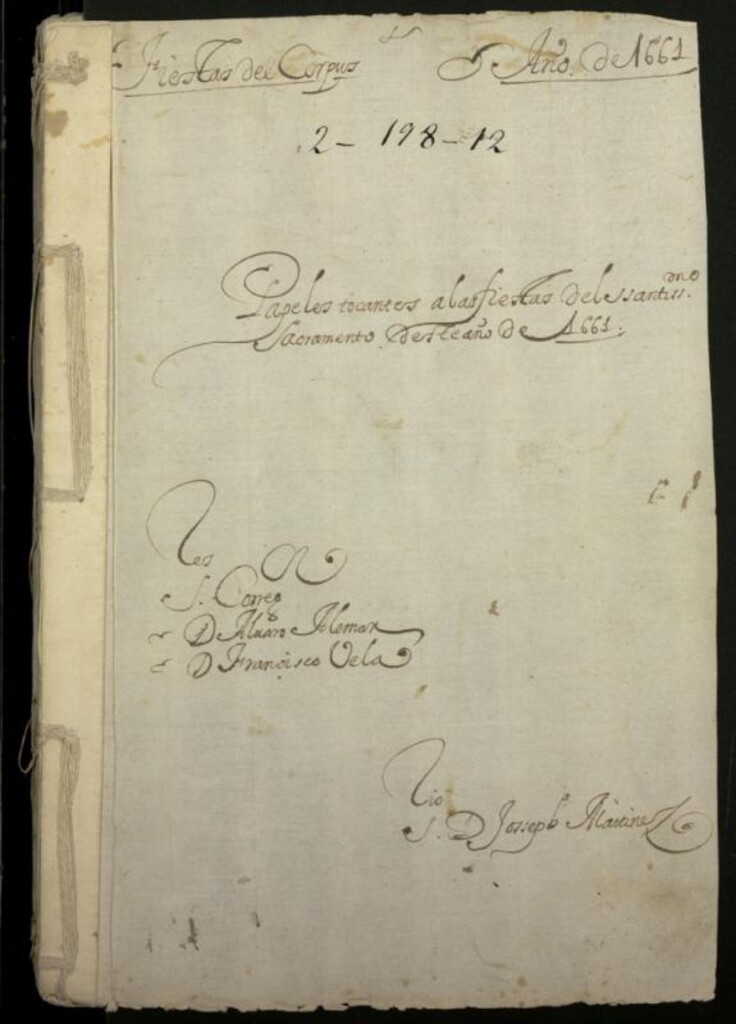 Fiestas del Corpus Año. De 1661
2 - 198 - 12
Papeles tocantes a las fiestas del ssantissmo
Sacramento deste año de 1661.
S. Correg
D Aluaro Aleman
D Francisco Vela
S. D Josseph Martinez